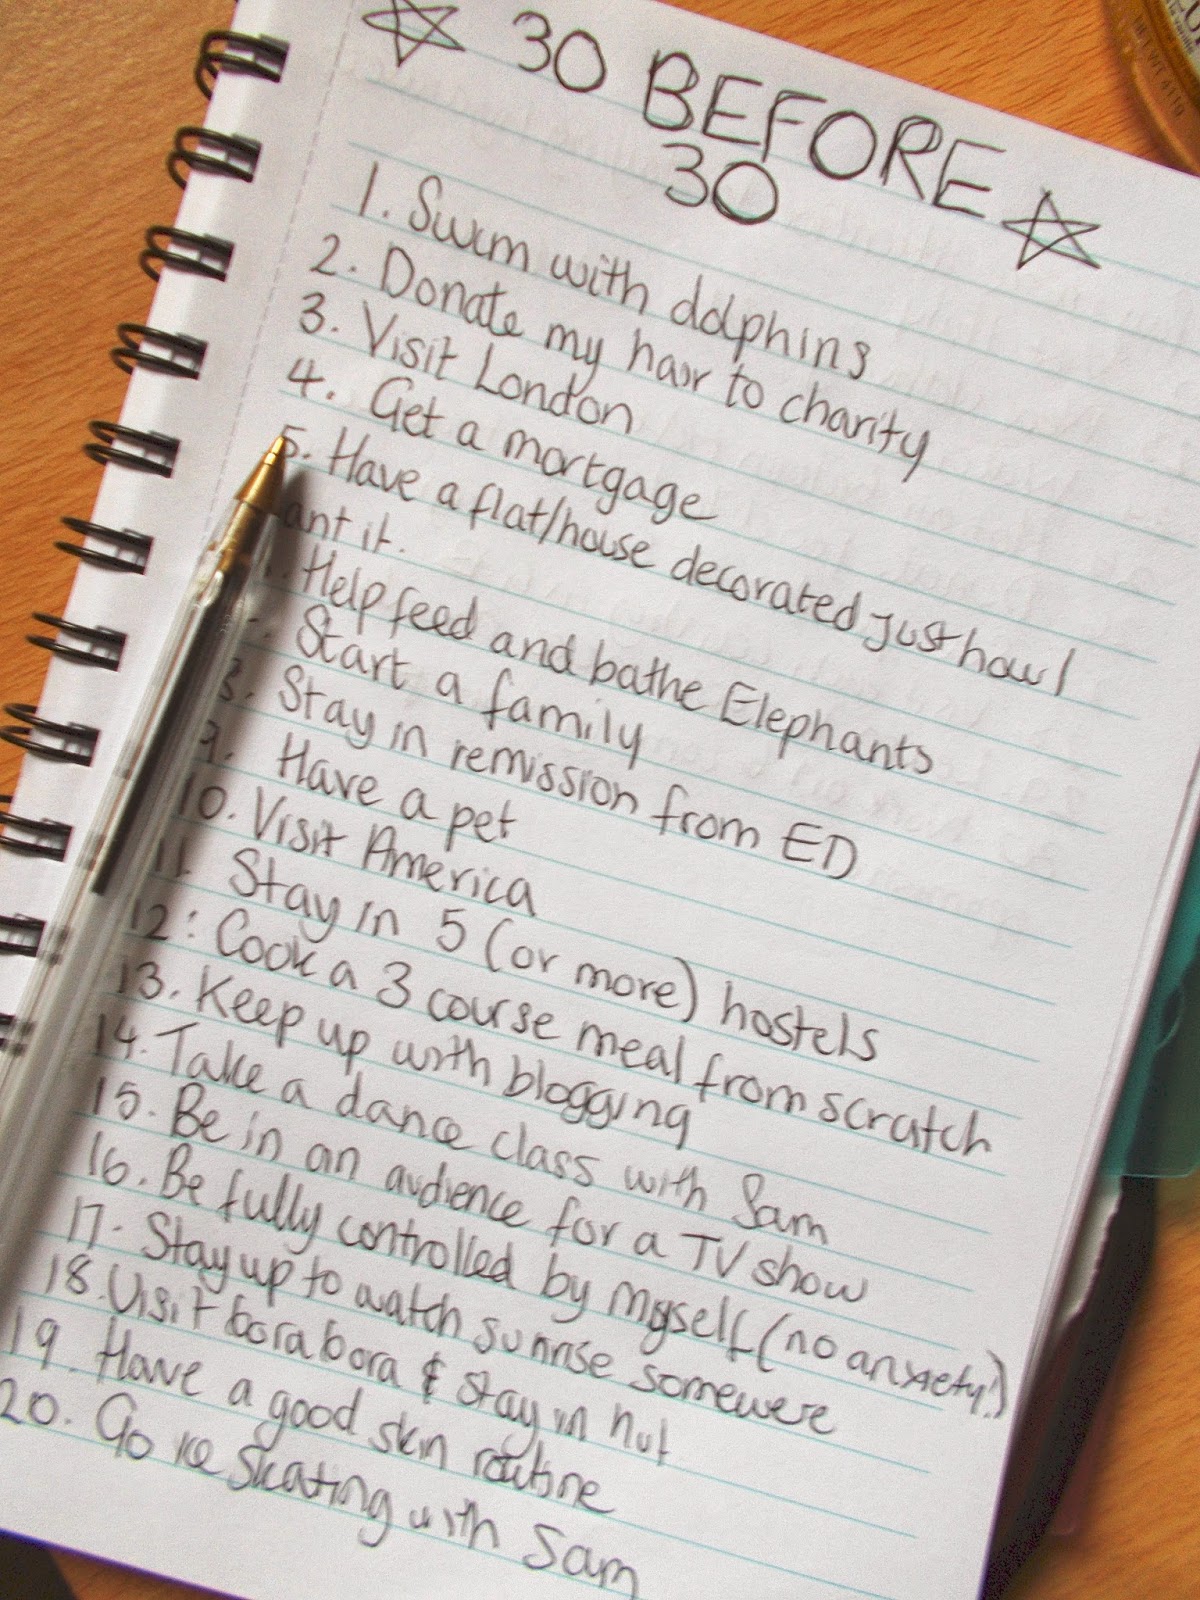 ☆ 30 BEFORE
30 ☆
1. Swim with dolphins
2. Donate my hair to charity
3. Visit London
4. Get a mortgage
5. Have a flat/house decorated just how I
ant it.
Help feed and bathe Elephants
Start a family
8. Stay in remission from ED
9. Have a pet
10. Visit America
11. Stay in 5 (or more) hostels
12: Cook a 3 course meal from scratch
13. Keep up with blogging
14. Take a dance class with Sam
15. Be in an audience for a TV show
16. Be fully controlled by myself (no anxiety!)
17. Stay up to watch sunrise somewere
18. Visit bora bora & stay in hut
19. Have a good skin routine
20. Go ice skating with Sam
NET WT 4.1